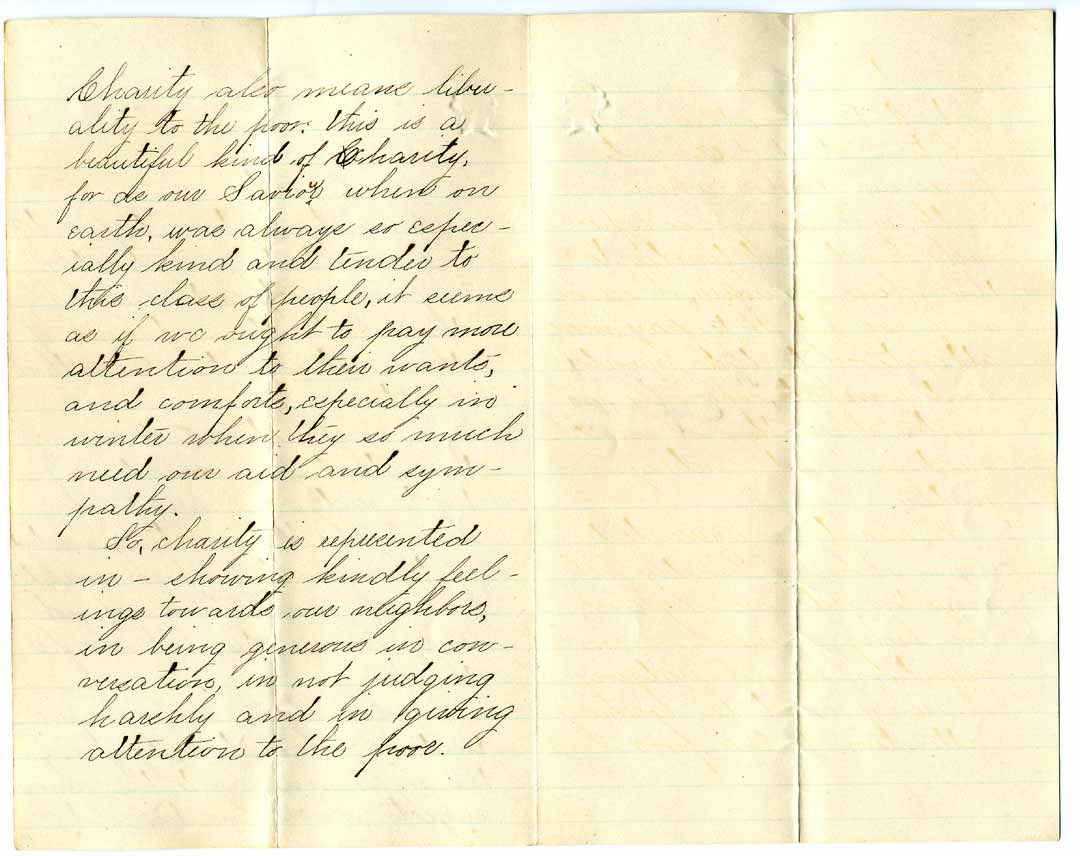 Charity also means liber-
ality to the poor. this is a
beautiful kind of Charity,
for as our Saviour when on
earth, was always so espec-
ially kind and tender to
this class of people, it seems
as if we ought to pay more
attention to their wants,
and comforts, especially in
winter when they so much
need our aid and sym-
pathy.
So, charity is represented
in - showing kindly feel-
ings towards our neighbors,
in being generous in con-
versation, in not judging
harshly and in giving
attention to the poor.